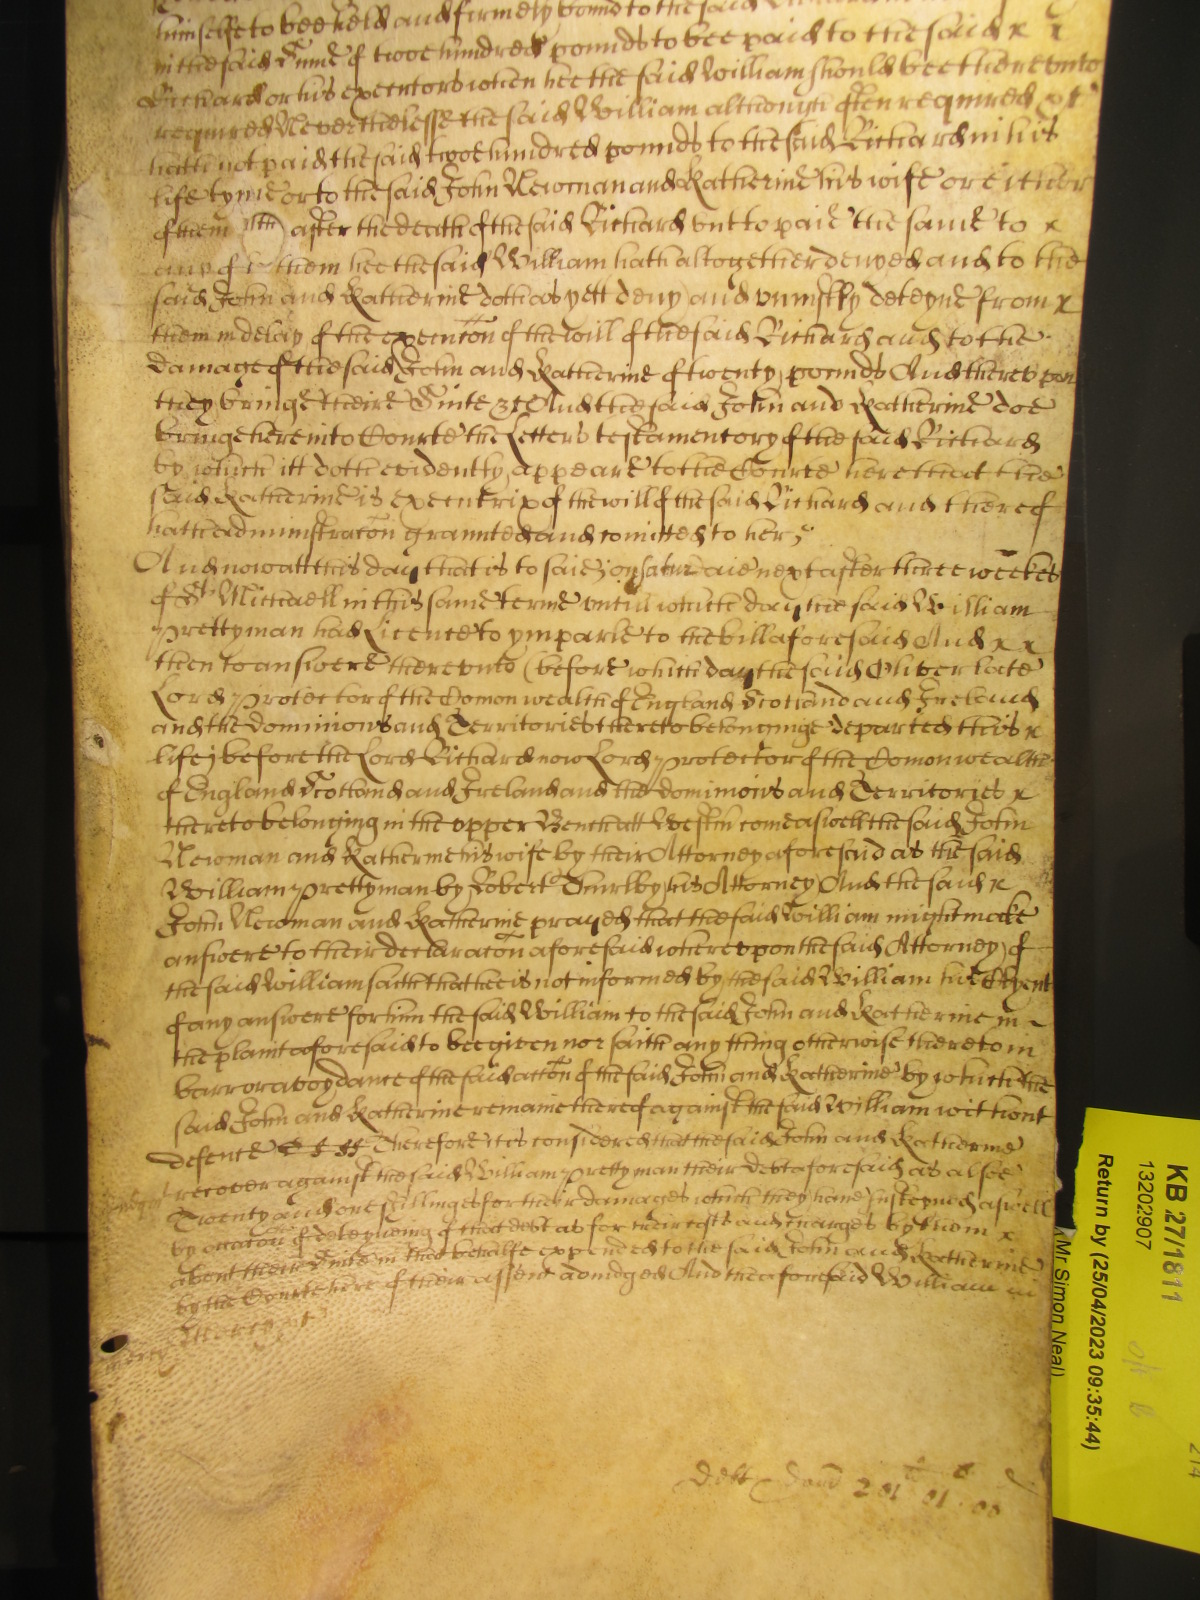 himselfe to bee held and firmely bound to the said
in the said Sume of twoe hundred pounds to bee paid to the said x x
Richard or his executors when hee the said William should bee thereunto
required Neverthelesse the said William although often required &c
hath not paid the said twoe hundred pounds to the said Richard in his
life tyme or to the said John Newman and Katherine his wife or either
of them after the death of the said Richard but to paie the same to x
any of them hee the said William hath altogether denyed and to the
said John and Katherine doth as yett deny and uniustly deteyne from x
them in delay of the execucon of the will of the said Richard and to the
damage of the said John and Katherine of twenty pounds And thereupon
they bringe theire Suite &c And the said John and Katherine doe
bringe here into Courte the Letters testamentory of the said Richard
by which itt doth evidently appeare to the Courte here that the
said Katherine is executrix of the will of the said Richard and thereof
hath administracon graunted and comitted to her &c
And now att this day that is to saie on satur daie next after three weekes
of St Michaell in this same terme until which day the said William
Prettyman had Licence to ymparle to the bill aforesaid And x x
then to answere thereunto (before which day the said Oliver late
Lord Protector of the Comonwealth of England Scotland and Ireland
and the dominions and Territories thereto belonginge departed this x
life) before the Lord Richard now Lord Protector of the Comonwealth
of England Scotland and Ireland and the dominions and Territories x
thereto belonging in the upper Bench att Westm come aswell the said John
Newman and Katherine his wife by their Attorney aforesaid as the said
William Prettyman by Robert Thurlby his Attorney And the said x
John Newman and Katherine prayed that the said William might make
answere to their declaracon aforesaid whereupon the said Attorney of
the said William saith that hee is not informed by the said William his Clyent
of any answere for him the said William to the said John and Katherine in
the plaint aforesaid to bee given nor saith any thing otherwise thereto in
barr or avoydance of the said accon of the said John and Katherine by which the
said John and Katherine remaine thereof against the said William without
defence Therefore it is considered that the said John and Katherine
recover against the said William Prettyman their debt aforesaid as alsoe
Twenty and one shillinges for their damages which they have susteyned aswell
by occacon of deteyneing of that debt as for their costs and charges by them x
about their Suite in that behalfe expended to the said John and Katherine
by the Courte here of their assent adiudged And the aforesaid William in
mercy &c
mercy
Debt Dam 201 01 00
KB 27/1811
13202907
Return by (25/04/2023 09:35:44)
Mr Simon Neal)
214